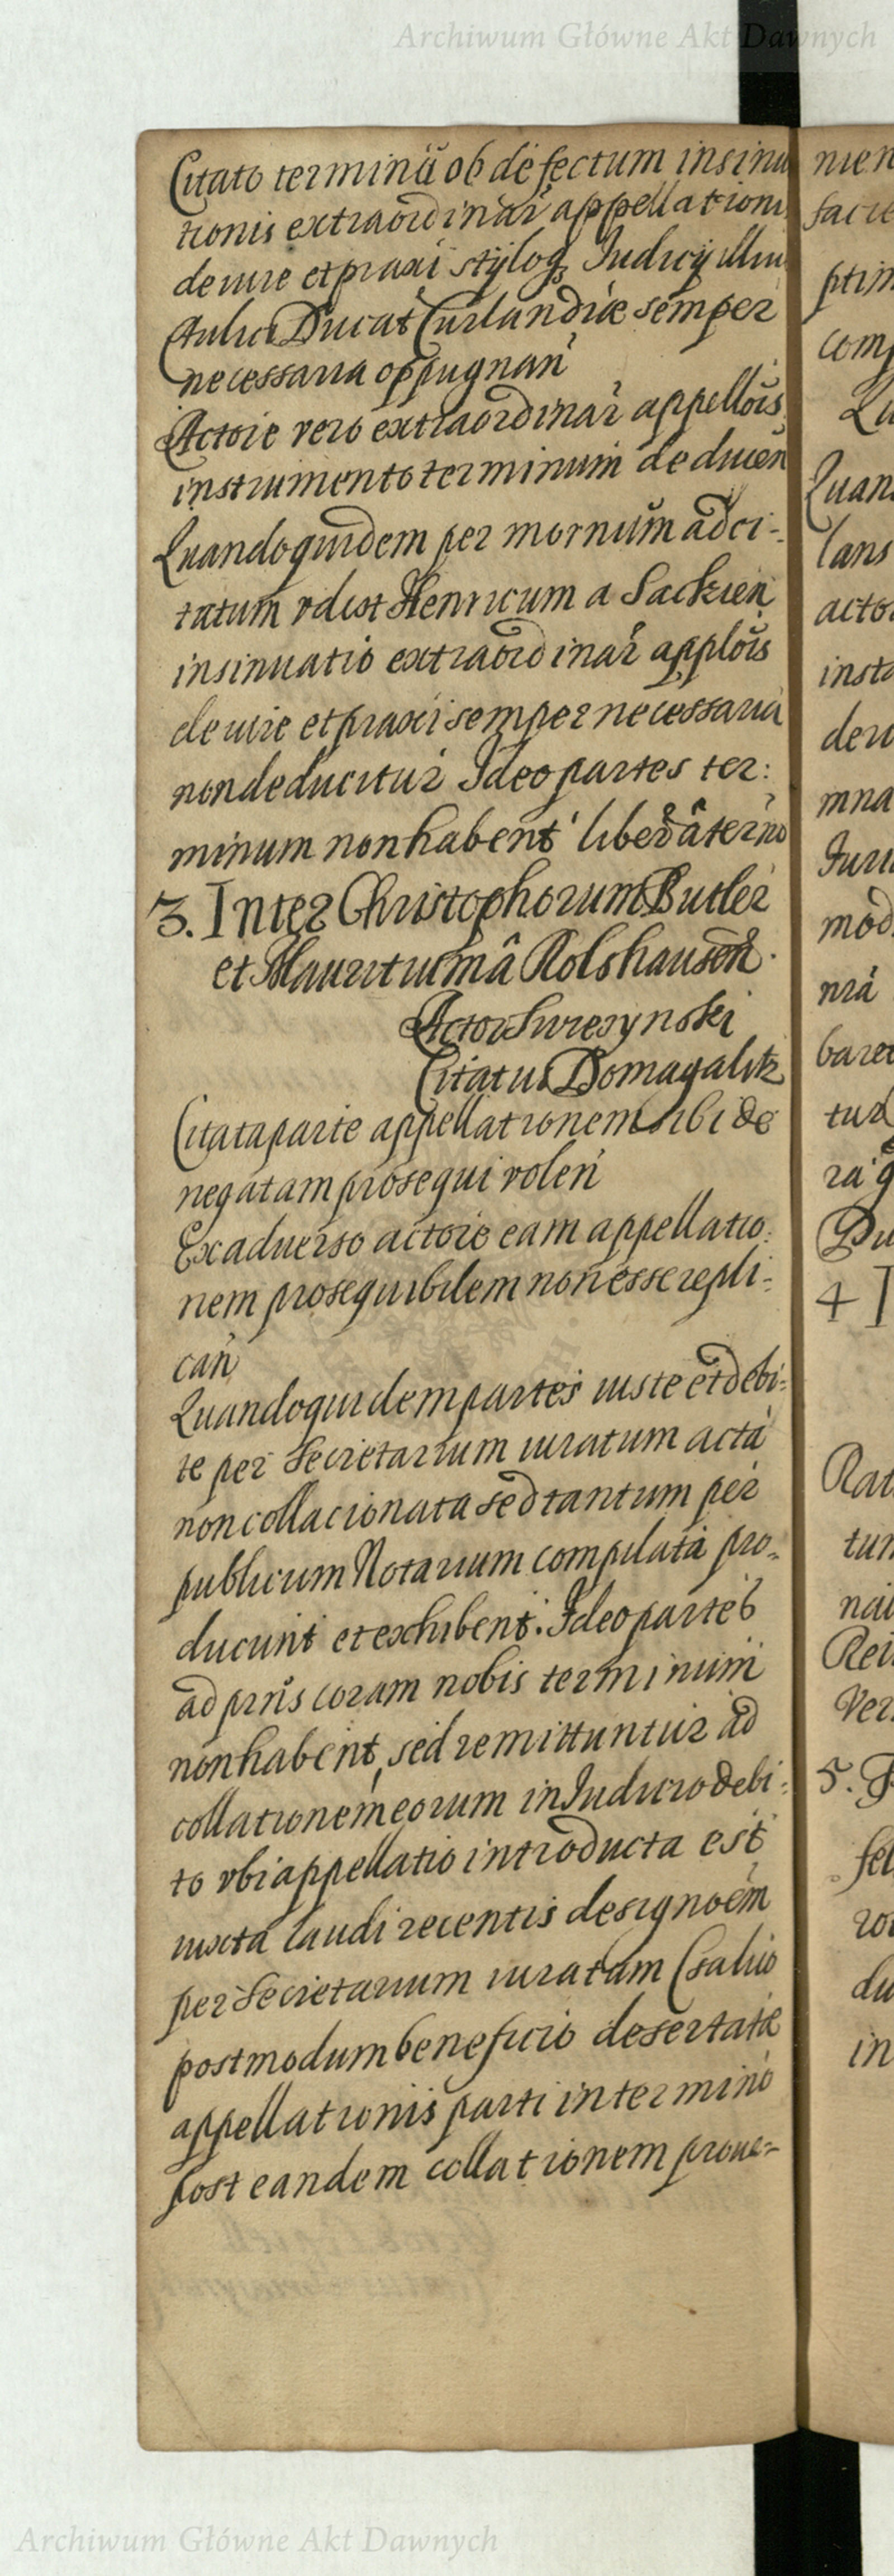 Archiwum Główne Akt Dawnych
Citato terminū ob defectum insinu
tionis extraordinar appellationi
de iure et praxi styloq Iudicij illiu
Aulici Ducat Curlandiæ semper
necessaria oppugnan
Actore vero extraordinar appellōis
instrumento terminum deducen
Quandoquidem per mornum ad ci-
tatum vdist Henricum a Sackien
insinuatio extraordinar applōis
de iure et praxi semper necessaria
non deducitur Ideo partes ter:
minum non habent liberâ termo
3. Inter Christophorum Butler
et Mauritium â Rolshausen.
Actor Suresynski
Citatus Domagalik
Citata parte appellationem sibi de
negatam prosequi volen
Ex aduerso actore eam appellatio:
nem prosequibilem non esse repli-
can
Quandoquidem partes iuste et debi-
te per Secretarium iuratum acta
non collacionata sed tantum per
publicum Notarium compilata pro-
ducunt et exhibent. Ideo partes
ad prñs coram nobis terminum
non habent, sed remittuntur ad
collationem eorum in Iudicio debi-
to vbi appellatio introducta est
iuxta laudi recentis designoem
per Secretarium iuratam (saluo
postmodum beneficio desertatæ
appellationis parti in termino
post eandem collationem proue-
nien
facie
ptim
comp
Qu
Quan
lans
acto
insta
deu
mna
Iuri
mod
nia
baret
tur
ra q
Du
4 I
Rat
tun
nai
Rei
Ver
5.
fel
ro
du
in
Archiwum Główne Akt Dawnych